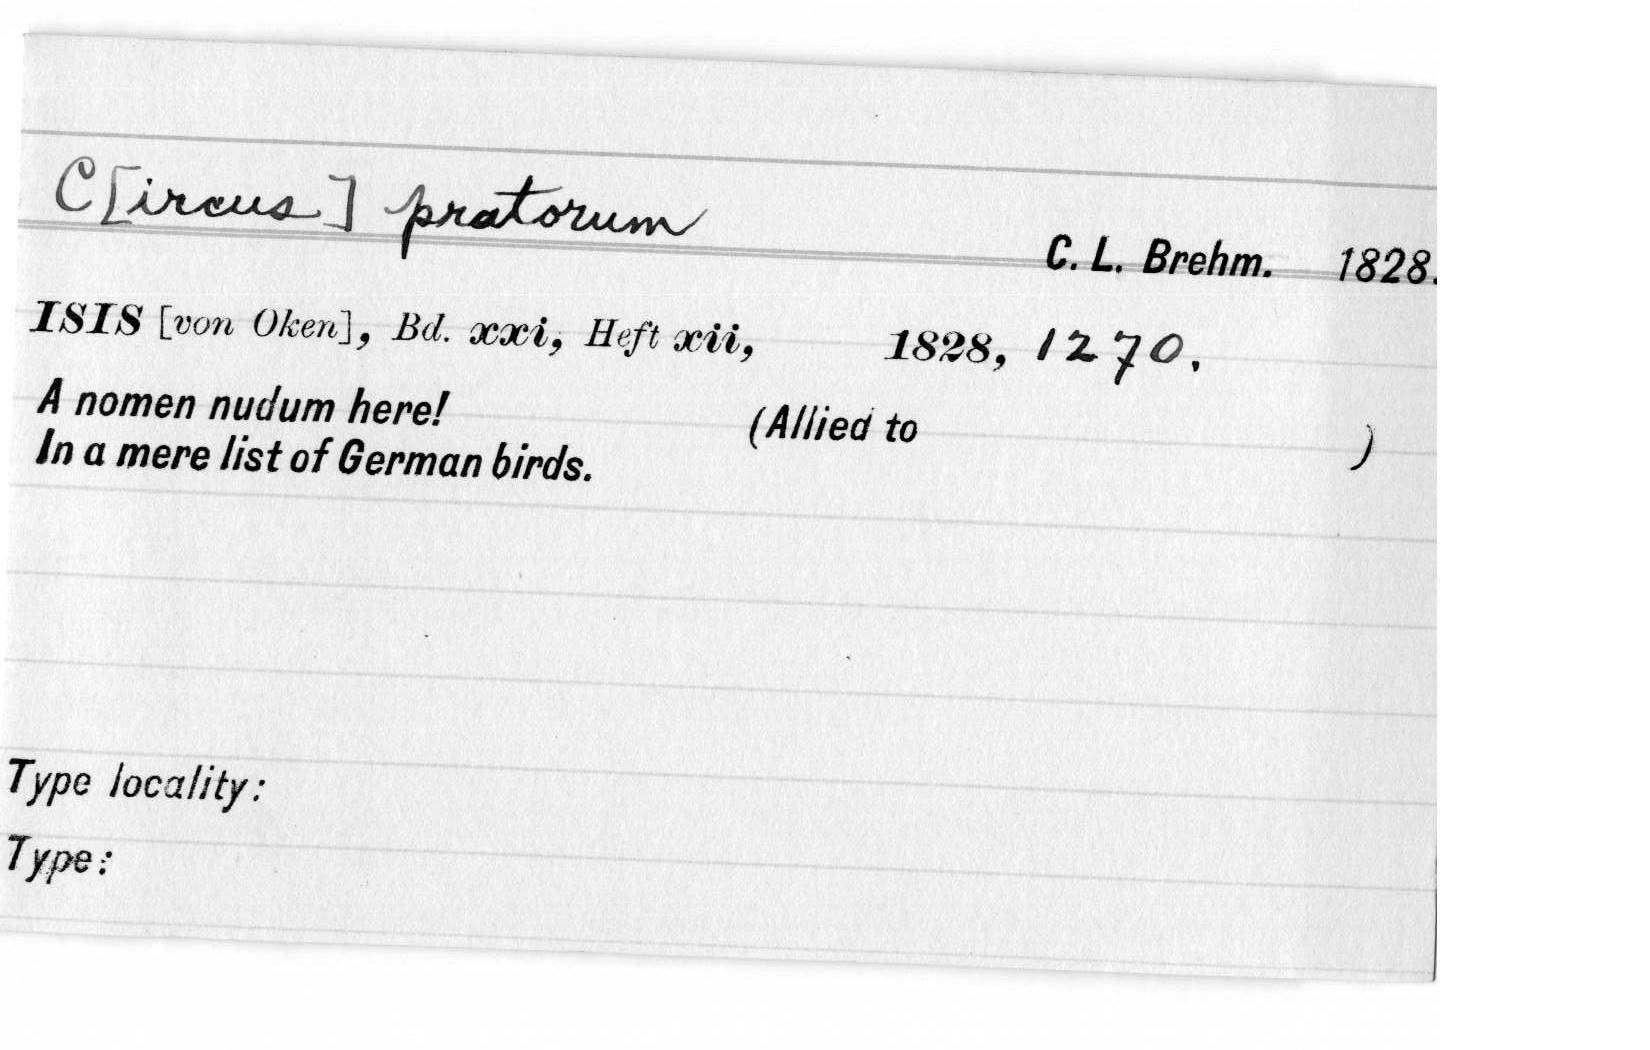 C[ircus] pratorum
C. L. Brehm. 1828.
ISIS [von Oken], Bd. xxi, Heft xii, 1828, 1270.
A nomen nudum here! (Allied to )
In a mere list of German birds.
Type locality:
Type: